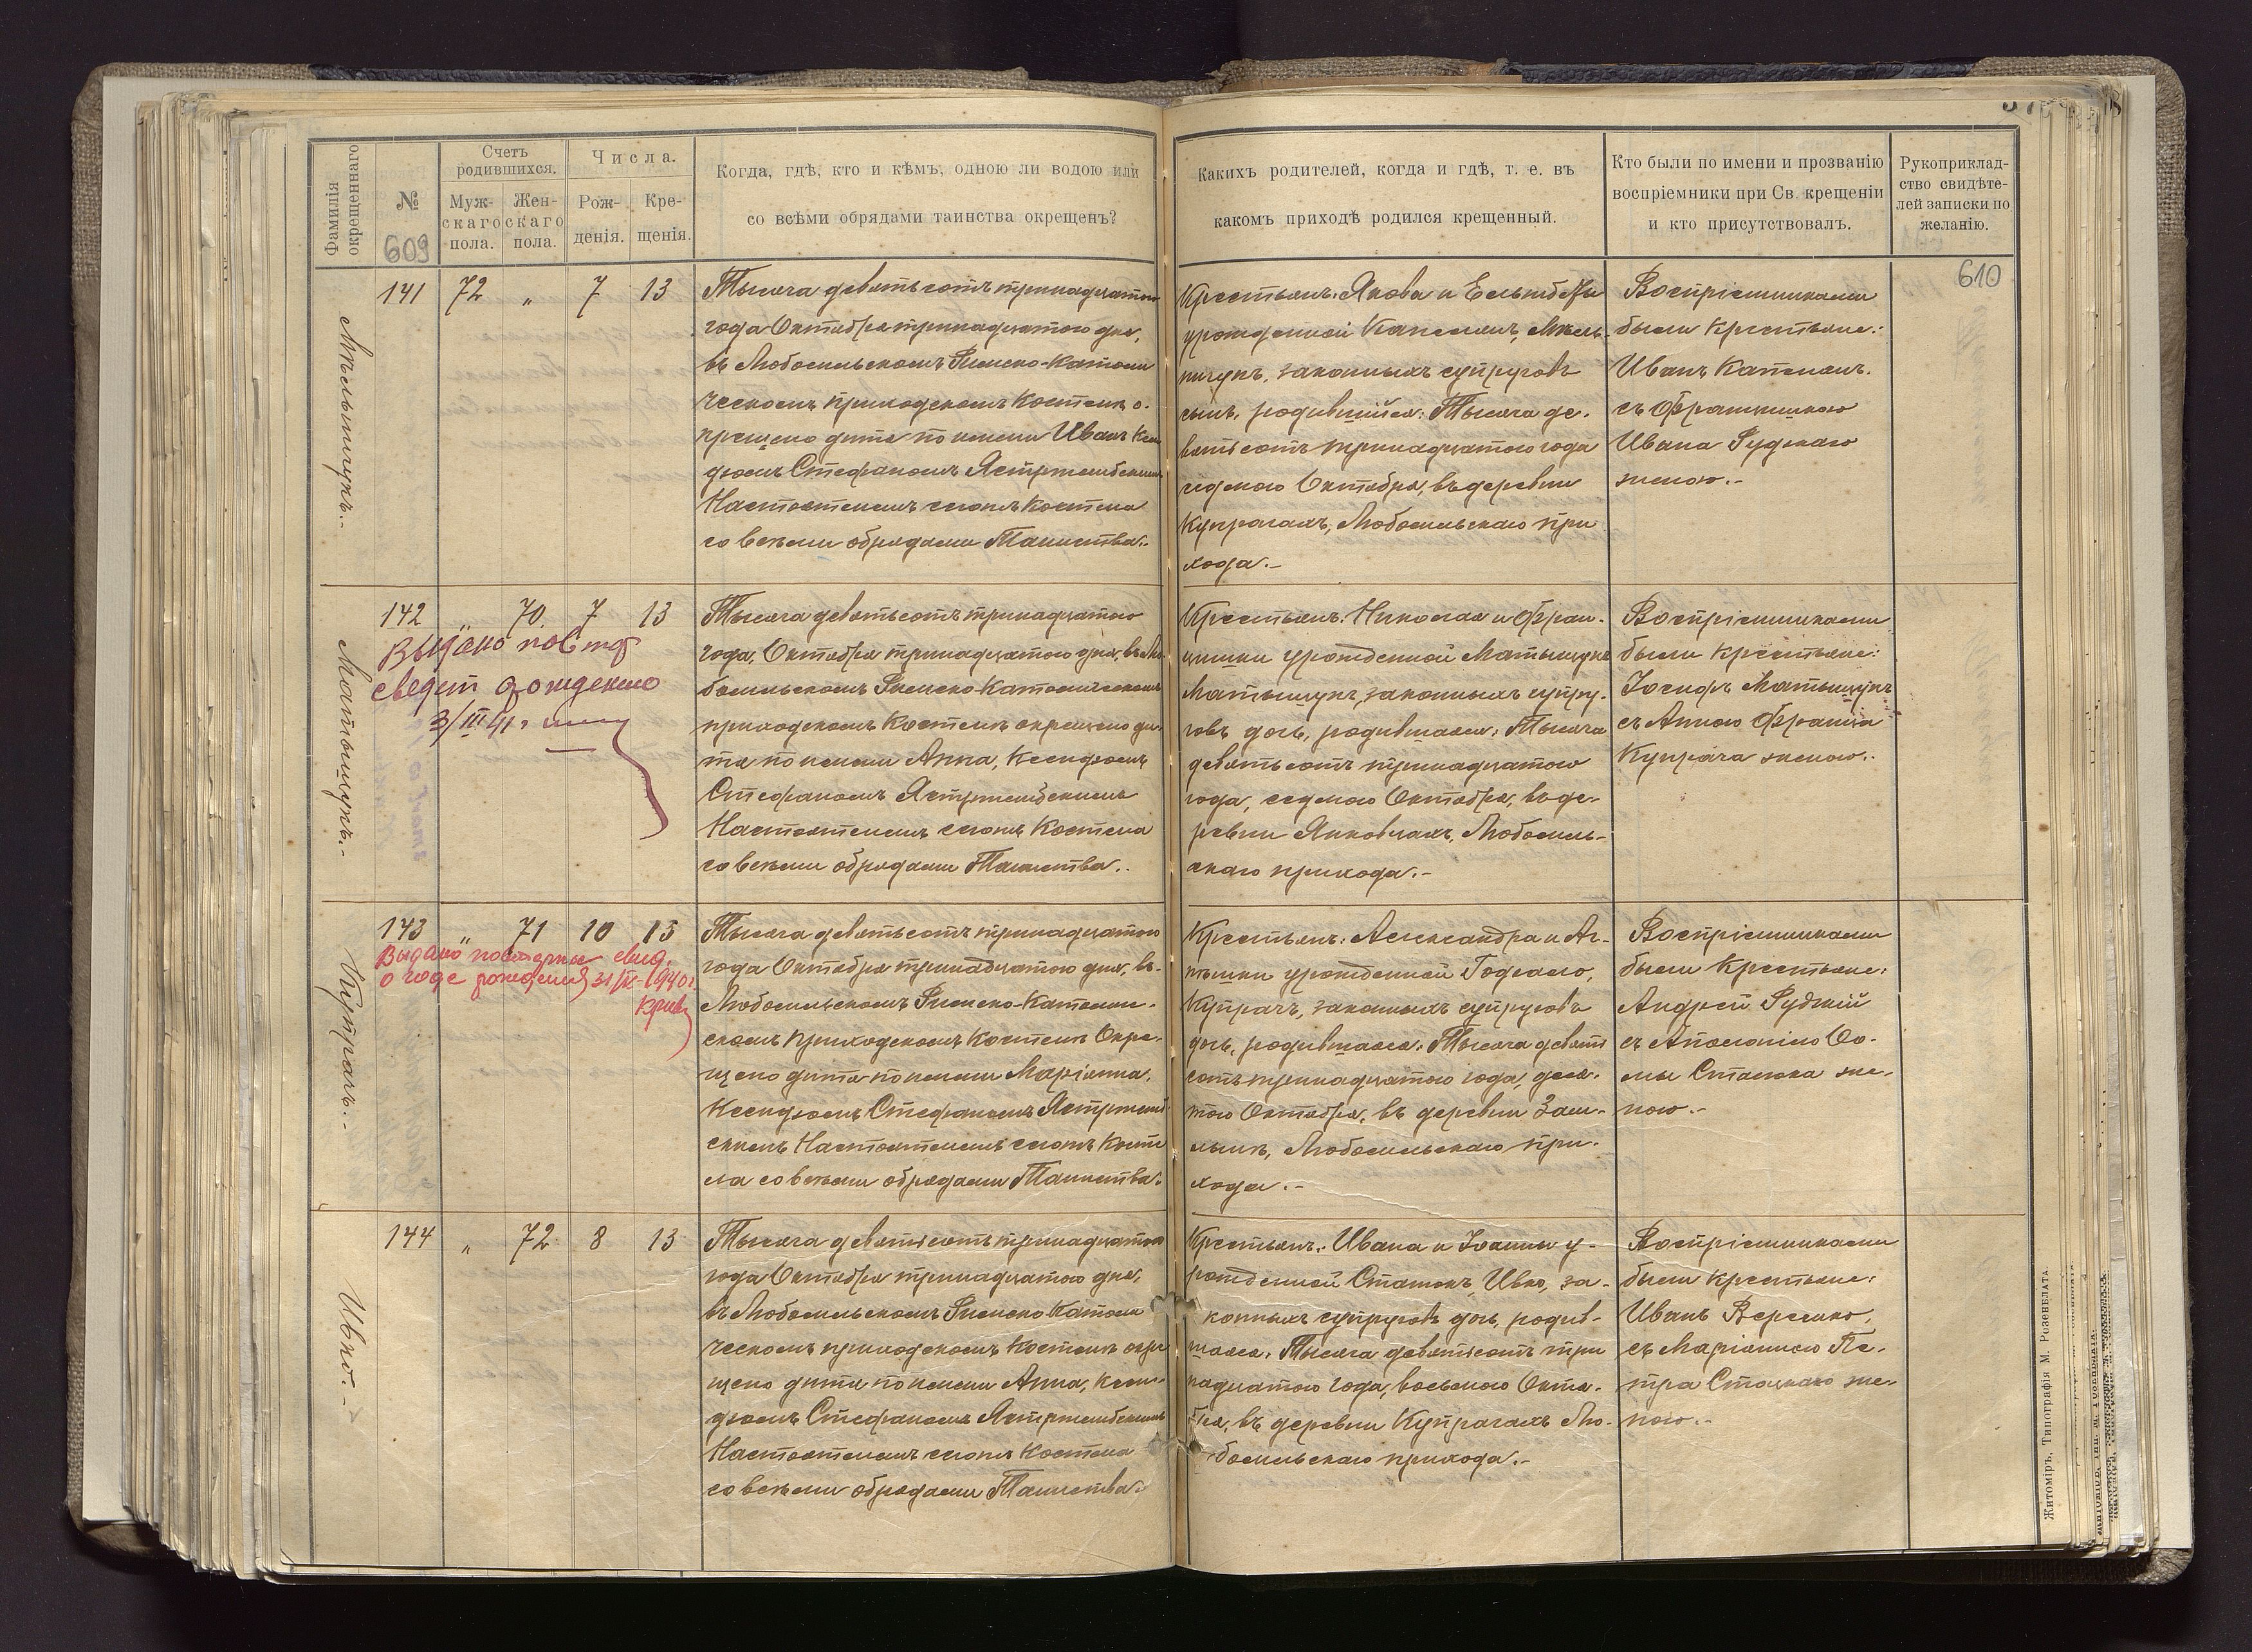 Фамилія окрещеннаго
№
609
Счетъ родившихся.
Муж-
скаго
пола.
Жен-
скаго
пола.
Числа.
Рож-
денія.
Кре-
щенія.
Когда, гдѣ, кто и кѣмъ, одною ли водою или
со всѣми обрядами таинства окрещенъ?
Каких родителей, когда и гдѣ, т. е. въ
какомъ приходѣ родился крещенный.
Кто были по имени и прозванію
воспріемники при Св. крещеніи
и кто присутствовалъ.
Рукоприклад-
ство свидѣте-
лей записки по
желанію.
610
141 72 „ 7 13
Тысяча девятьсотъ тринадцатаго
года Октября тринадцатого дня,
въ Любомльскомъ Римско-Католи
ческомъ приходскомъ Костелѣ о.
крещено дитя по имени Иванъ Ксен
дзомъ Стефаномъ Ястржембскимъ
Настоятелемъ сего Костела
со всѣми обрядами Таинства..
Крестьянъ: Якова и
урожденной Капелянъ,
законныхъ супруговъ
сынъ, родившійся: Тысяча де-
вятьсотъ тринадцатого года
седмого Октября, въ деревни
Купрачахъ, Любомльскаго при
хода.-
Воспріемниками
были крестьяне:
Иванъ Капелянъ.
съ Францишкою
Ивана Рудзкаго
женою.-
142 „ 70. 7 13
Выдано повтор
свидет о рождению
3/III 41г.
Матыщукъ.-
Тысяча девятьсотъ тринадцатого
года, Октября тринадцатого дня, въ Лю
бомльскомъ Римско-Католическомъ
приходскомъ Костелѣ окрещено ди-
тя по имени Анна, Ксендзомъ
Стефаномъ Ястржембскимъ
Настоятелемъ сего Костела
со всѣми обрядами Таинства..
Крестьянъ: Николая и Фран-
цишки урожденной Матыщукъ
Матыщукъ, законныхъ супру-
говъ дочь, родившаяся: Тысяча
девятьсотъ тринадцатого
года, седмого Октября, въ де-
ревни Янковцахъ, Любомль-
скаго прихода.-
Воспріемниками
были крестьяне:
Іосифъ Матыщукъ
съ Анною Франца
Купрача женою..
143 „ 71 10 13
Выдано повторные свид.
о годе рождения 31/IX-1940г.
Купрачъ.-
Тысяча девятьсотъ тринадцатого
года Октября тринадцатого дня, въ-
Любомльскомъ Римско-Католич-
скомъ приходскомъ Костелѣ Окре-
щено дитя по имени Маріанна,
Ксендзомъ Стефаномъ Ястржемб-
скимъ Настоятелемъ сего Косте
ла со всѣми обрядами Таинства.
Крестьянъ: Александра и Аг-
нѣшки урожденной
Купрачъ, законныхъ супруговъ
дочь, родившаяся: Тысяча девять
сотъ тринадцатого года, деся-
того Октября, въ деревни Зам-
лынѣ, Любомльскаго при-
хода.-
Воспріемниками
были крестьяне:
Андрей Рудзкій
съ Аполонією Ѳо-
мы же-
ною.-
144 „ 72. 8 13
Ивко.-
Тысяча девятьсотъ тринадцатого
года Октября тринадцатого дня,
въ Любомльскомъ Римско Католи
ческомъ приходскомъ Костелѣ окре
щено дитя по имени Анна, Ксен-
дзомъ Стефаномъ Ястржембскимъ
Настоятелемъ сего Костела
со всѣми обрядами Таинства.
Крестьянъ: Ивана и Іоанны у-
рожденной Ивко, за-
конныхъ супруговъ дочь, родив-
шаяся: Тысяча девятьсотъ три
надцатого года, восьмого Октя-
бря, въ деревни Купрачахъ Лю-
бомльскаго прихода.-
Воспріемниками
были крестьяне:
Иванъ Веремко,
съ Маріанною Пе-
тра Стоцкаго же-
ною.-
Житоміръ, Типографія М. Розенблата.